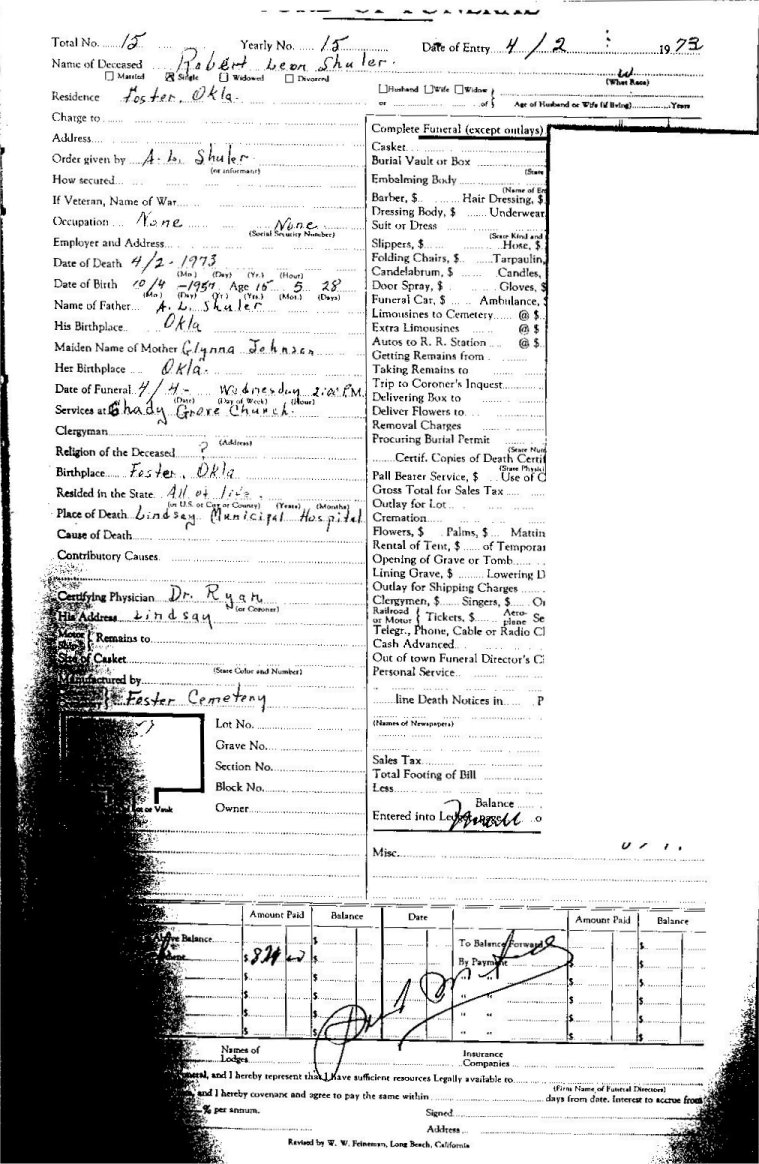 Total No. 15 Yearly No. 15 Date of Entry 4/2 1973
Name of Deceased Robert Leon Shuler.
Married Single Widowed Divorced
W
(What Race)
Residence Foster, Okla.
Husband Wife Widow
or of Age of Husband or Wife (if living) Years
Charge to
Address
Order given by A. L. Shuler
(or informant)
How secured
If Veteran, Name of War
Occupation None None
(Social Security Number)
Employer and Address
Date of Death 4/2-1973
(Mo.) (Day) (Yr.) (Hour)
Date of Birth 10/4-1957 Age 15 5 28
(Mo.) (Day) (Yr.) (Yrs.) (Mos.) (Days)
Name of Father A. L. Shuler
His Birthplace Okla
Maiden Name of Mother Glynna Johnson
Her Birthplace Okla.
Date of Funeral 4/4- Wednesday 2:00 P.M.
(Date) (Day of Week) (Hour)
Services at Shady Grove Church.
Clergyman
(Address)
Religion of the Deceased ?
Birthplace Foster, Okla
Resided in the State All of life.
(in U.S. or City or County) (Years) (Months)
Place of Death Lindsay Municipal Hospital
Cause of Death
Contributory Causes
Certifying Physician Dr. Ryan
(or Coroner)
His Address Lindsay
Motor
Ship
Remains to
Size of Casket
(State Color and Number)
Manufactured by
Foster Cemetery
Lot No.
Grave No.
Section No.
Block No.
Owner
Lot or Vault
Complete Funeral (except outlays)
Casket
Burial Vault or Box
(State
Embalming Body
(Name of Em
Barber, $ Hair Dressing, $
Dressing Body, $ Underwear
Suit or Dress
(State Kind and
Slippers, $ Hose, $
Folding Chairs, $ Tarpaulin,
Candelabrum, $ Candles,
Door Spray, $ Gloves, $
Funeral Car, $ Ambulance, $
Limousines to Cemetery @ $
Extra Limousines @ $
Autos to R. R. Station @ $
Getting Remains from
Taking Remains to
Trip to Coroner's Inquest
Delivering Box to
Deliver Flowers to
Removal Charges
Procuring Burial Permit
(State Num
Certif. Copies of Death Certif
(State Physici
Pall Bearer Service, $ Use of C
Gross Total for Sales Tax
Outlay for Lot
Cremation
Flowers, $ Palms, $ Mattin
Rental of Tent, $ of Temporar
Opening of Grave or Tomb
Lining Grave, $ Lowering D
Outlay for Shipping Charges
Clergymen, $ Singers, $ Or
Railroad or Motor Tickets, $ Aeroplane Se
Telegr., Phone, Cable or Radio Cl
Cash Advanced
Out of town Funeral Director's C
Personal Service
line Death Notices in P
(Names of Newspapers)
Sales Tax
Total Footing of Bill
Less
Balance
Entered into Ledger, page
Misc.
Amount Paid Balance Date Amount Paid Balance
Above Balance $ To Balance Forward $
By Payment
Names of Lodges
Insurance Companies
and I hereby represent that I have sufficient resources Legally available to
(Firm Name of Funeral Directors)
and I hereby covenant and agree to pay the same within days from date. Interest to accrue from
% per annum. Signed
Address
Revised by W. W. Feineman, Long Beach, California